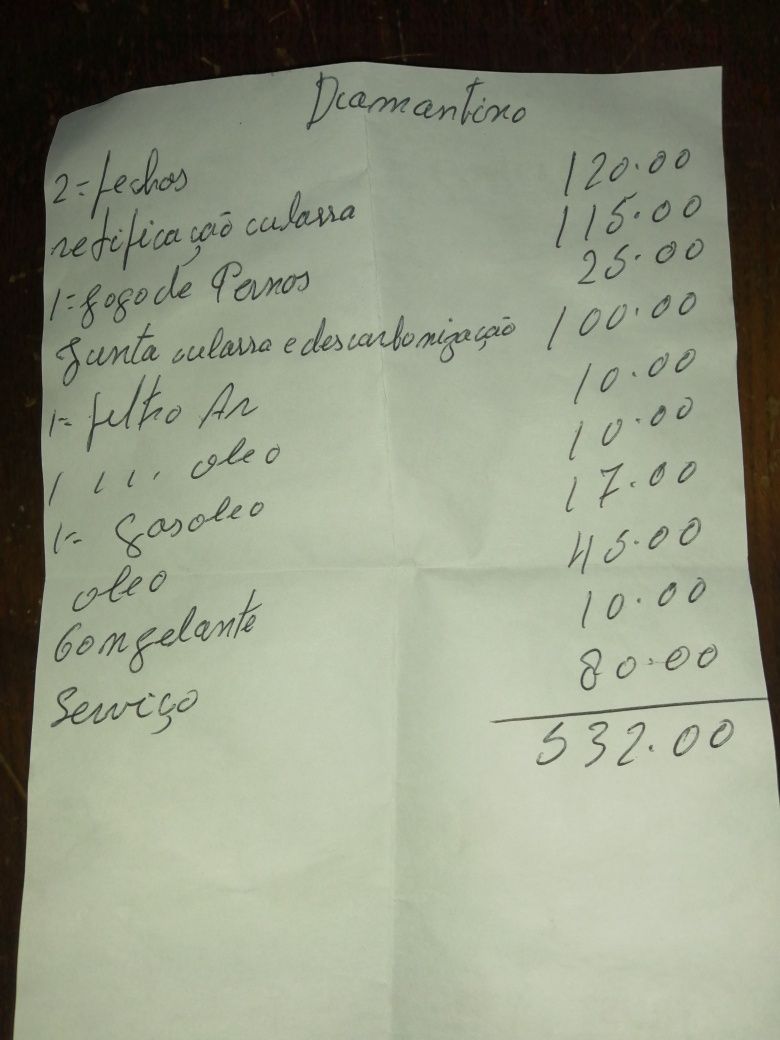 Diamantino
2= fechos 120.00
retificação culassa 115.00
1= gogo de Pernos 25.00
Junta culassa e descarbonização 100.00
1= filtro Ar 10.00
1 1 1, oleo 10.00
1= gasoleo 17.00
oleo 45.00
Congelante 10.00
Serviço 80.00
532.00